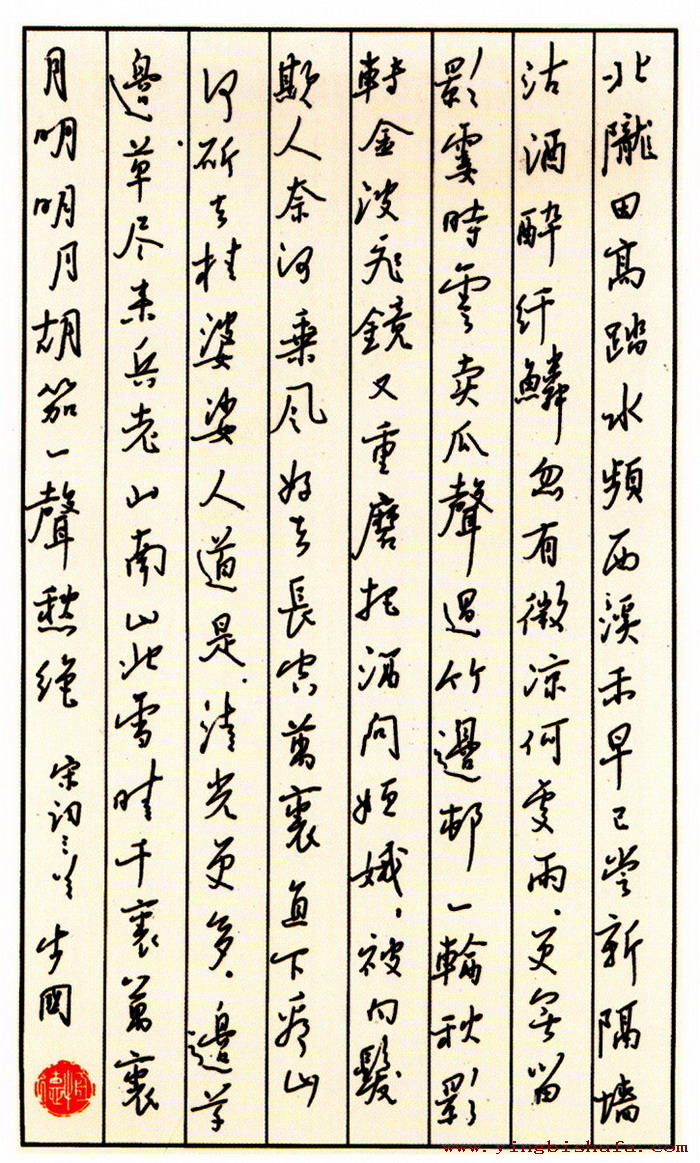 北隴田高踏水頻西溪禾早已尝新隔墙
沽酒醉纤鳞忽有微凉何处雨更無留
影霎時雲卖瓜聲過竹邊邨一輪秋影
轉金波飛鏡又重磨把酒问姮娥被白髮
欺人奈何乘风好去長空萬裏直下看山
河斫去桂婆娑人道是清光更多邊草
邊草尽来兵老山南山北雪晴千裏萬裏
月明明月胡笳一聲愁绝 宋词三首
www.yingbishufa.com